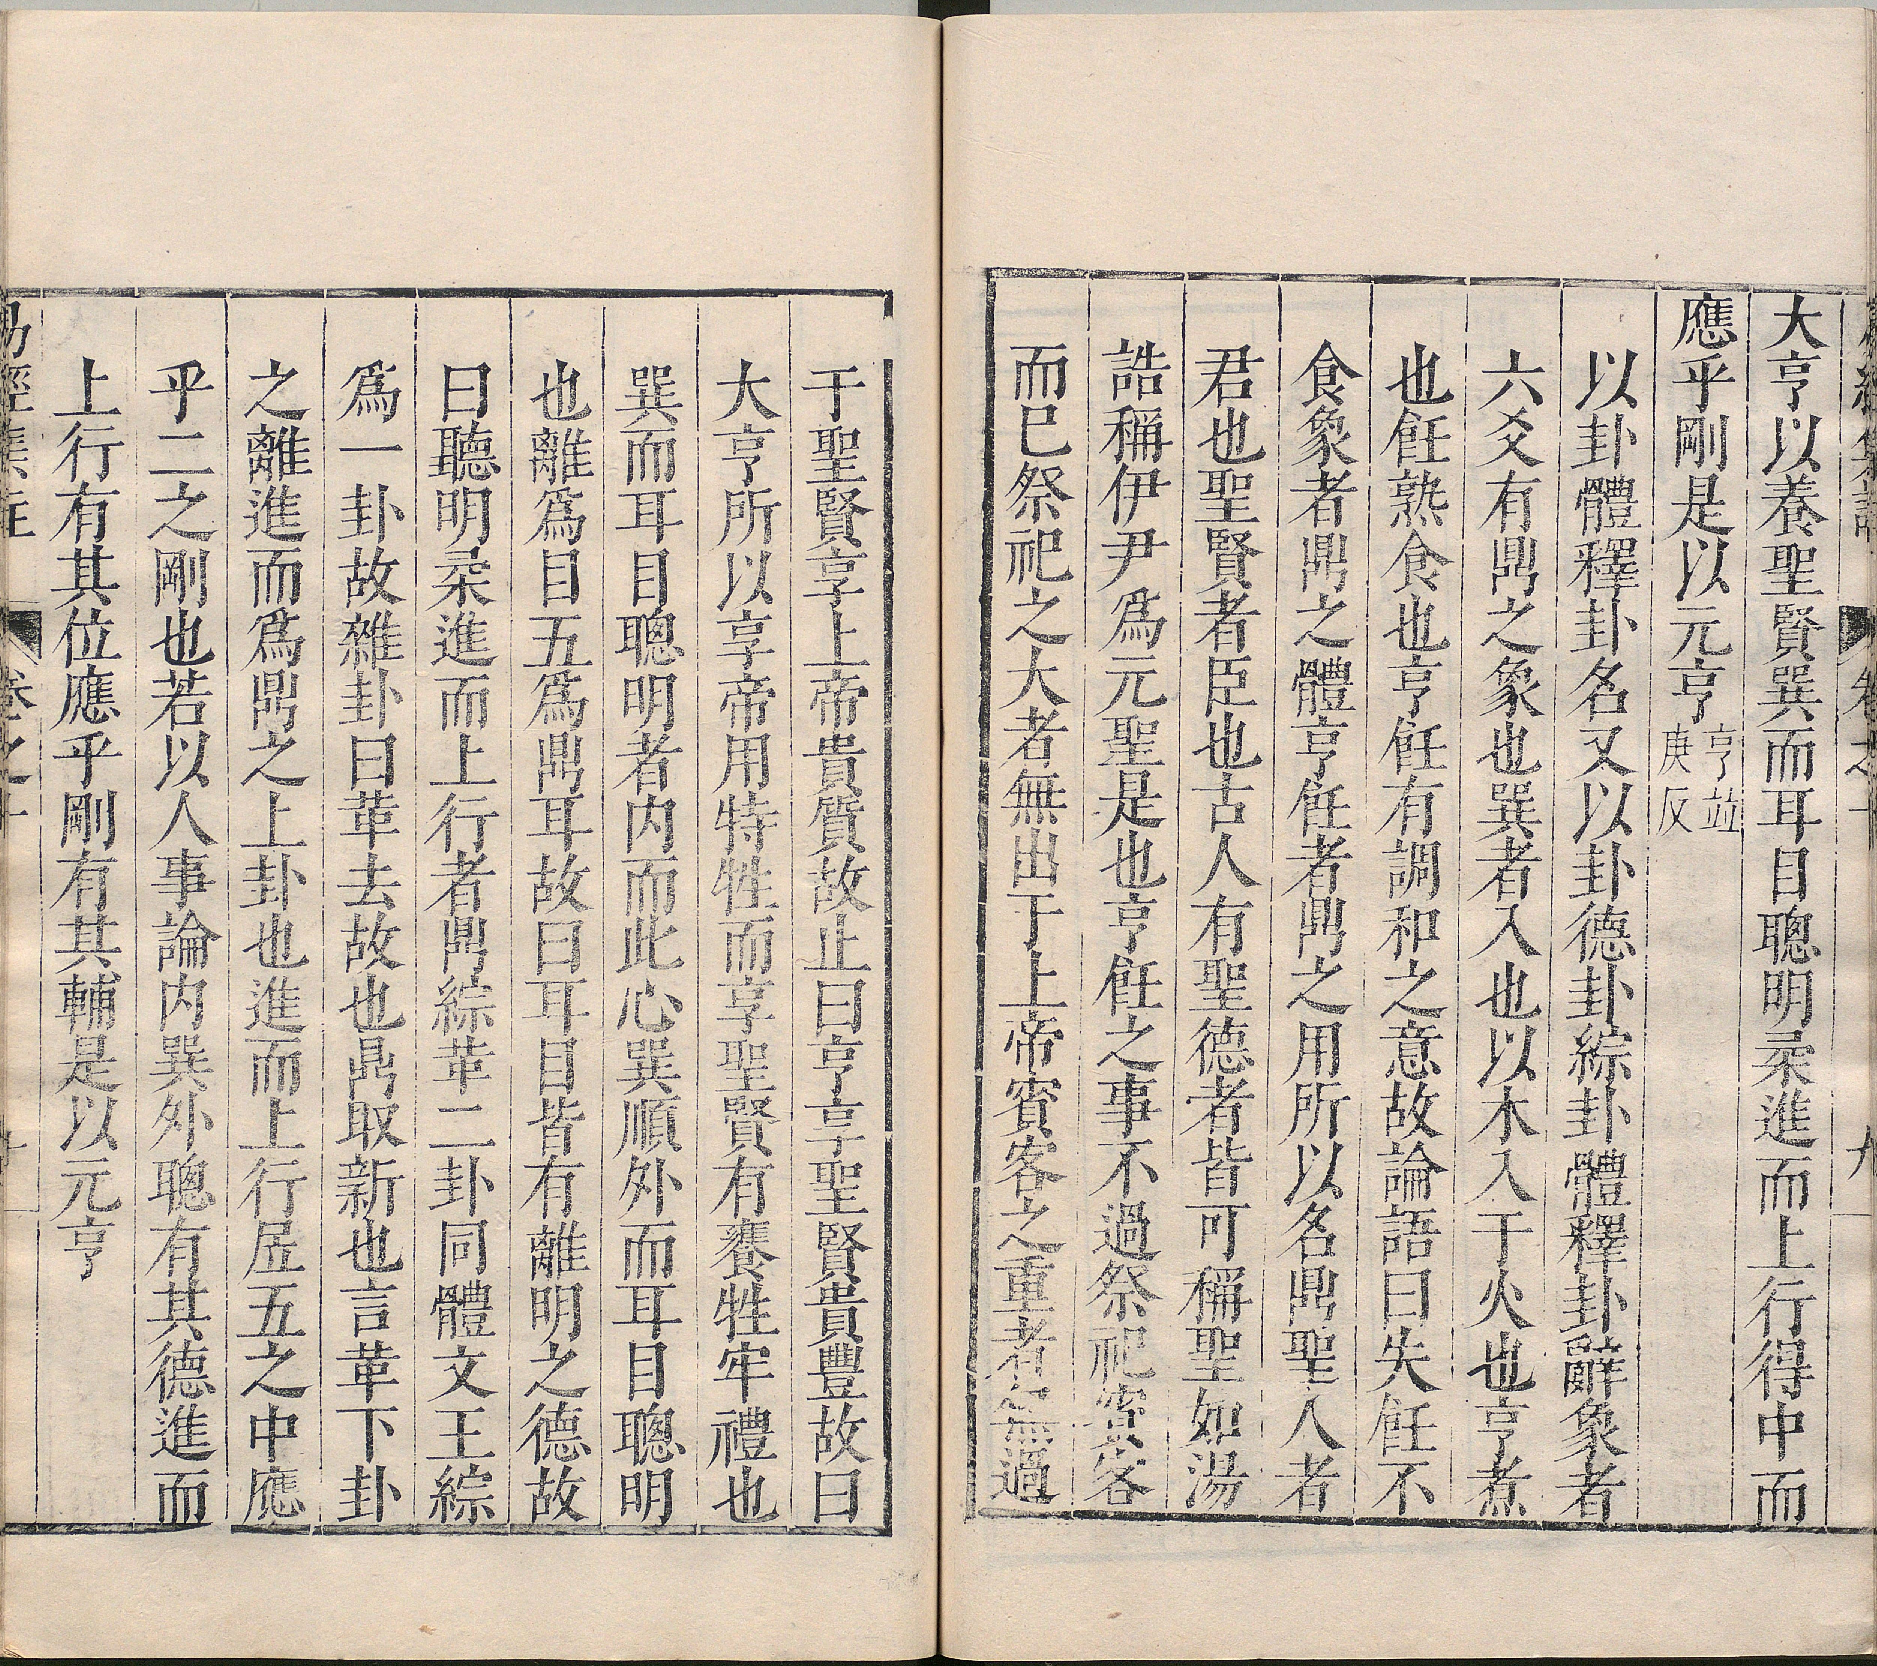 大亨以養聖賢巽而耳目聰明柔進而上行得中而
應乎剛是以元亨亨並庚反
以卦體釋卦名又以卦德卦綜卦體釋卦辭象者
六爻有鼎之象也巽者入也以木入于火也亨煮
也飪熟食也亨飪有調和之意故論語曰失飪不
食象者鼎之體亨飪者鼎之用所以名鼎聖人者
君也聖賢者臣也古人有聖德者皆可稱聖如湯
誥稱伊尹爲元聖是也亨飪之事不過祭祀賓客
而已祭祀之大者無出于上帝賓客之重者無過
于聖賢享上帝貴質故止曰亨享聖賢貴豐故曰
大亨所以享帝用特牲而享聖賢有饔牲牢禮也
巽而耳目聰明者内而此心巽順外而耳目聰明
也離爲目五爲鼎耳故曰耳目皆有離明之德故
曰聰明柔進而上行者鼎綜革二卦同體文王綜
爲一卦故雜卦曰革去故也鼎取新也言革下卦
之離進而爲鼎之上卦也進而上行居五之中應
乎二之剛也若以人事論内巽外聰有其德進而
上行有其位應乎剛有其輔是以元亨
易經集註 卷之十